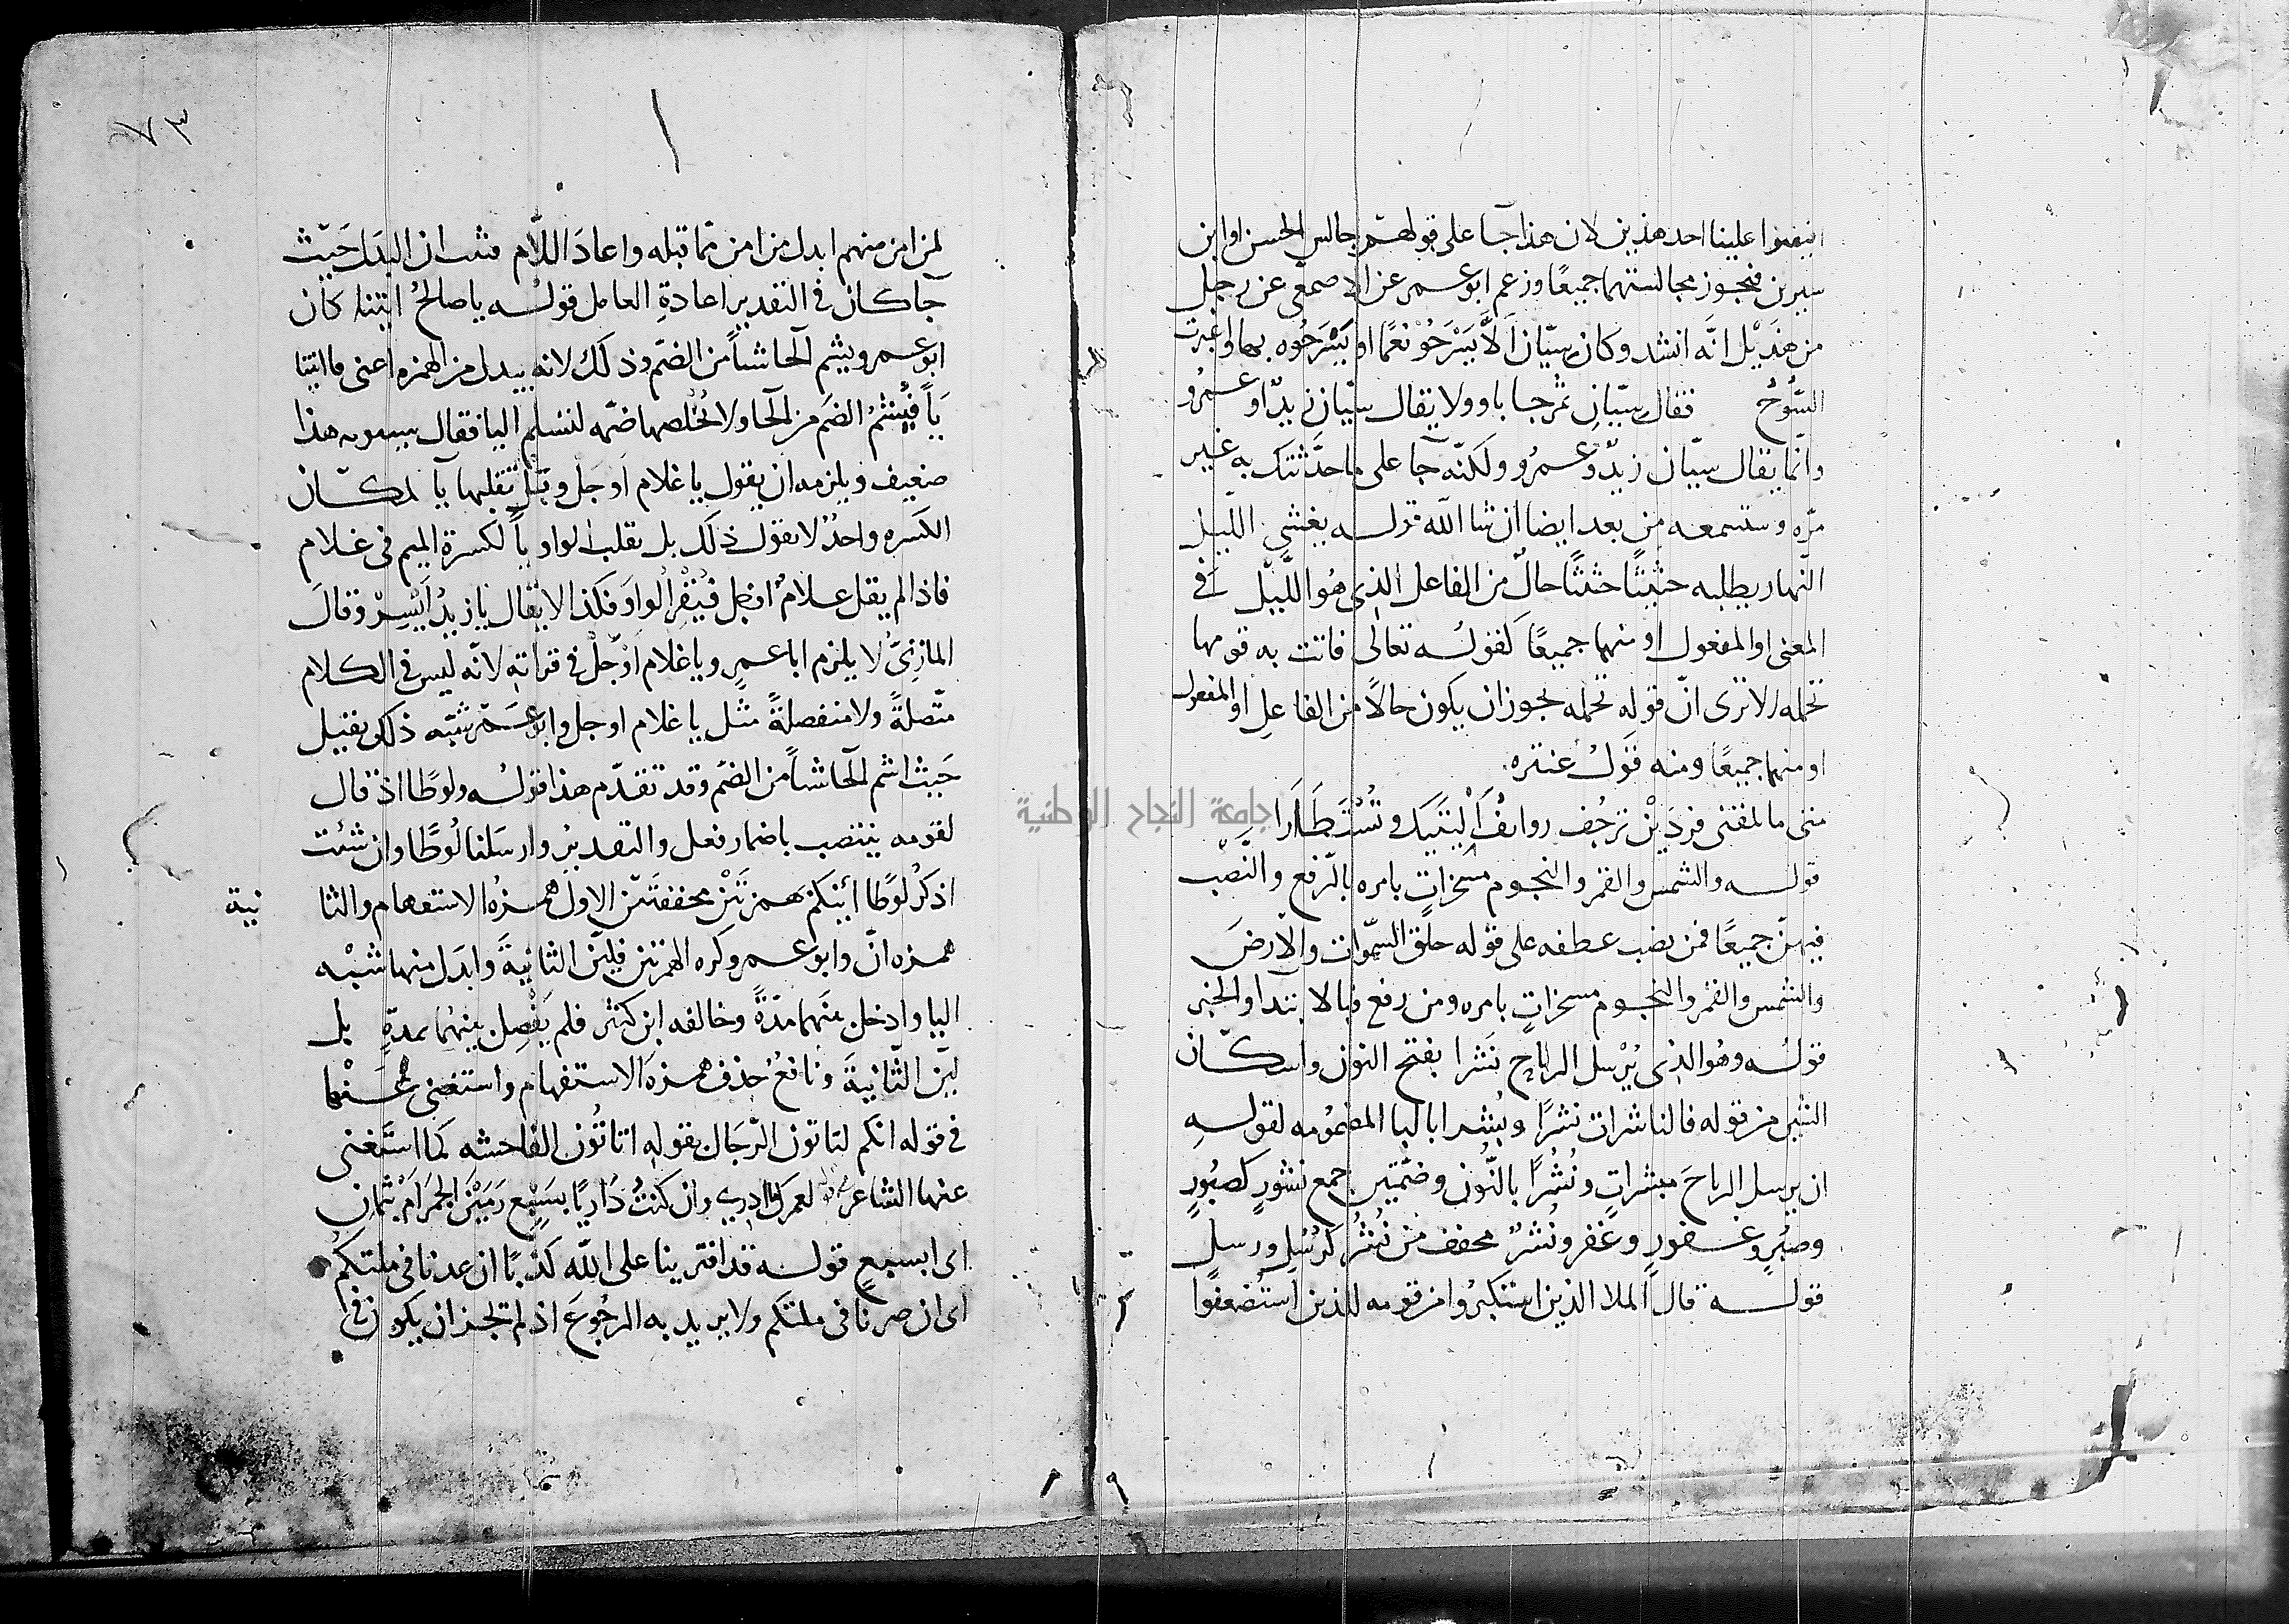 افيضوا علينا احد هذين لان هذا جا على قولهم جالس الحسن او ابن
سيرين فيجوز مجالستهما جميعًا وزعم ابو عمر عن الاصمعى عن رجل
من هذيل انه انشد وكان سيّان الّا يسرحو نعمًا او يسرحوه بها واغبرت
السُّوحُ فقال سيّانِ ثم جا باو ولا يقال سيّان زيدٌ او عمرُو
وانّما يقال سيّان زيدٌ وعمرُو ولكنّه جآ على ما حدّثتك به غير
مرّه وستسمعه من بعد ايضا ان شا الله قوله يغشى اللّيل
النّهار يطلبه حثيثًا حثيثًا حالٌ من الفاعل الذى هُو اللّيل فى
المعنى او المفعول او منهما جميعًا كقولُه تعالى فاتت به قومها
تحمله الا ترى انّ قوله تحمله يجوز ان يكون حالًا من الفاعلِ او المفعول
او منهما جميعًا ومنه قولُ عنتره
متى ما تلقنى فردَيْنِ ترجُف روانفُ اَلْيَتَيك وتُسْتَطَارَا
قوله والشمس والقمر والنجوم مسخراتٍ بامره بالرّفع والنّصْب
فيهنّ جميعًا فمن نصب عطفه على قوله خلق السّموات والارضَ
والشمس والقمر والنجوم مسخراتٍ بامره ومن رفع فبالابتدا والخبر
قولُه وهُو الذى يُرْسل الرياح نَشرا بفتح النون واسكان
الشين من قوله فالناشرات نشرًا وبُشرا بالبا المضمُومه لقولهِ
ان يرسل الرياحَ مبشراتٍ ونُشُرًا بالنُّون وضمّتين جمع نشورٍ كصبُورٍ
وصبُرٍ وغفورٍ وغفر ونُشْرٌ مخفف من نُشُرُ كرُسُلٍ ورسلٍ
قوله قال الملا الذين استكبرُوا من قومه للذين استُضعفوا
٧٣
لمن امن منهم ابدل من امن ممّا قبله واعادَ اللّام فثبت ان البدَل حَيثُ
جآ كان فى التقدير اعادةِ العامل قولُه يا صالحُ ائتنا كان
ابو عمر ويشم الحا شيأً من الضمّ وذلك لانه يبدل من الهمزه اعنى فا ائتنا
يَاً فيُشمُّ الضمَ من الحا ولا يُخْلصها ضمّه لتسلم اليا فقال سيبويه هذا
ضعيف ويلزمه ان يقول يا غلام اوجَل وتقلبها يآ لمكان
الكسره واحدٌ لا يقول ذلك بل تقلب الواو يآً لكسرة الميم فى غلام
فاذا لم يقل غلامُ اوجل فيُقْر الواوَ فكذا لا يقال يا زيدُ ايْسِرْ وقالَ
المازنىُّ لا يلزم ابا عمرٍ ويا غلام اوْجَلْ فى قراته لانّه ليس فى الكلام
متّصلةً ولا منفصلةً مثل يا غلام اوجل وابو عمر شبّه ذلك بقيل
حَيث اشم الحآ شيأً من الضمّ وقد تقدّم هذا قولُه ولوطًا اذ قال
لقومه ينتصب باضمار فعل والتقديرُ وارسَلنا لُوطًا وان شئت
اذكرُ لوطًا أئنكم بهمزتَيْن مخففتَيْن الاولُ همزهُ الاستفهام والثا نية
همزه انّ وابو عمرو كره الهمزتين فليّن الثانيةَ وابدَل منها شبْه
اليا وادخل بينَهما مدّةً وخالفه ابن كثير فلم يَفْصِل بينهُما بمدّةٍ بل
ليّن الثّانيةَ ونافعُ حذف همزه الاستفهام واستغنى عنْها
فى قوله انكم لتاتون الرّجَال بقولهِ اتاتُون الفاحشه كما استَّغنى
عنها الشاعرُ لعمرك ما ادرى وان كنتُ دَاريًا بسَبْعٍ رَمَيْنَ الجمرَ امْ بثمانِ
اى ابسبعٍ قوله قد افترينا على اللّه كذبًا ان عدنا فى ملتكمُ
اى ان صرنا فى ملتكم ولا يريد به الرجُوعَ اذ لم تجز ان يكون فى
جامعة النجاح الوطنية